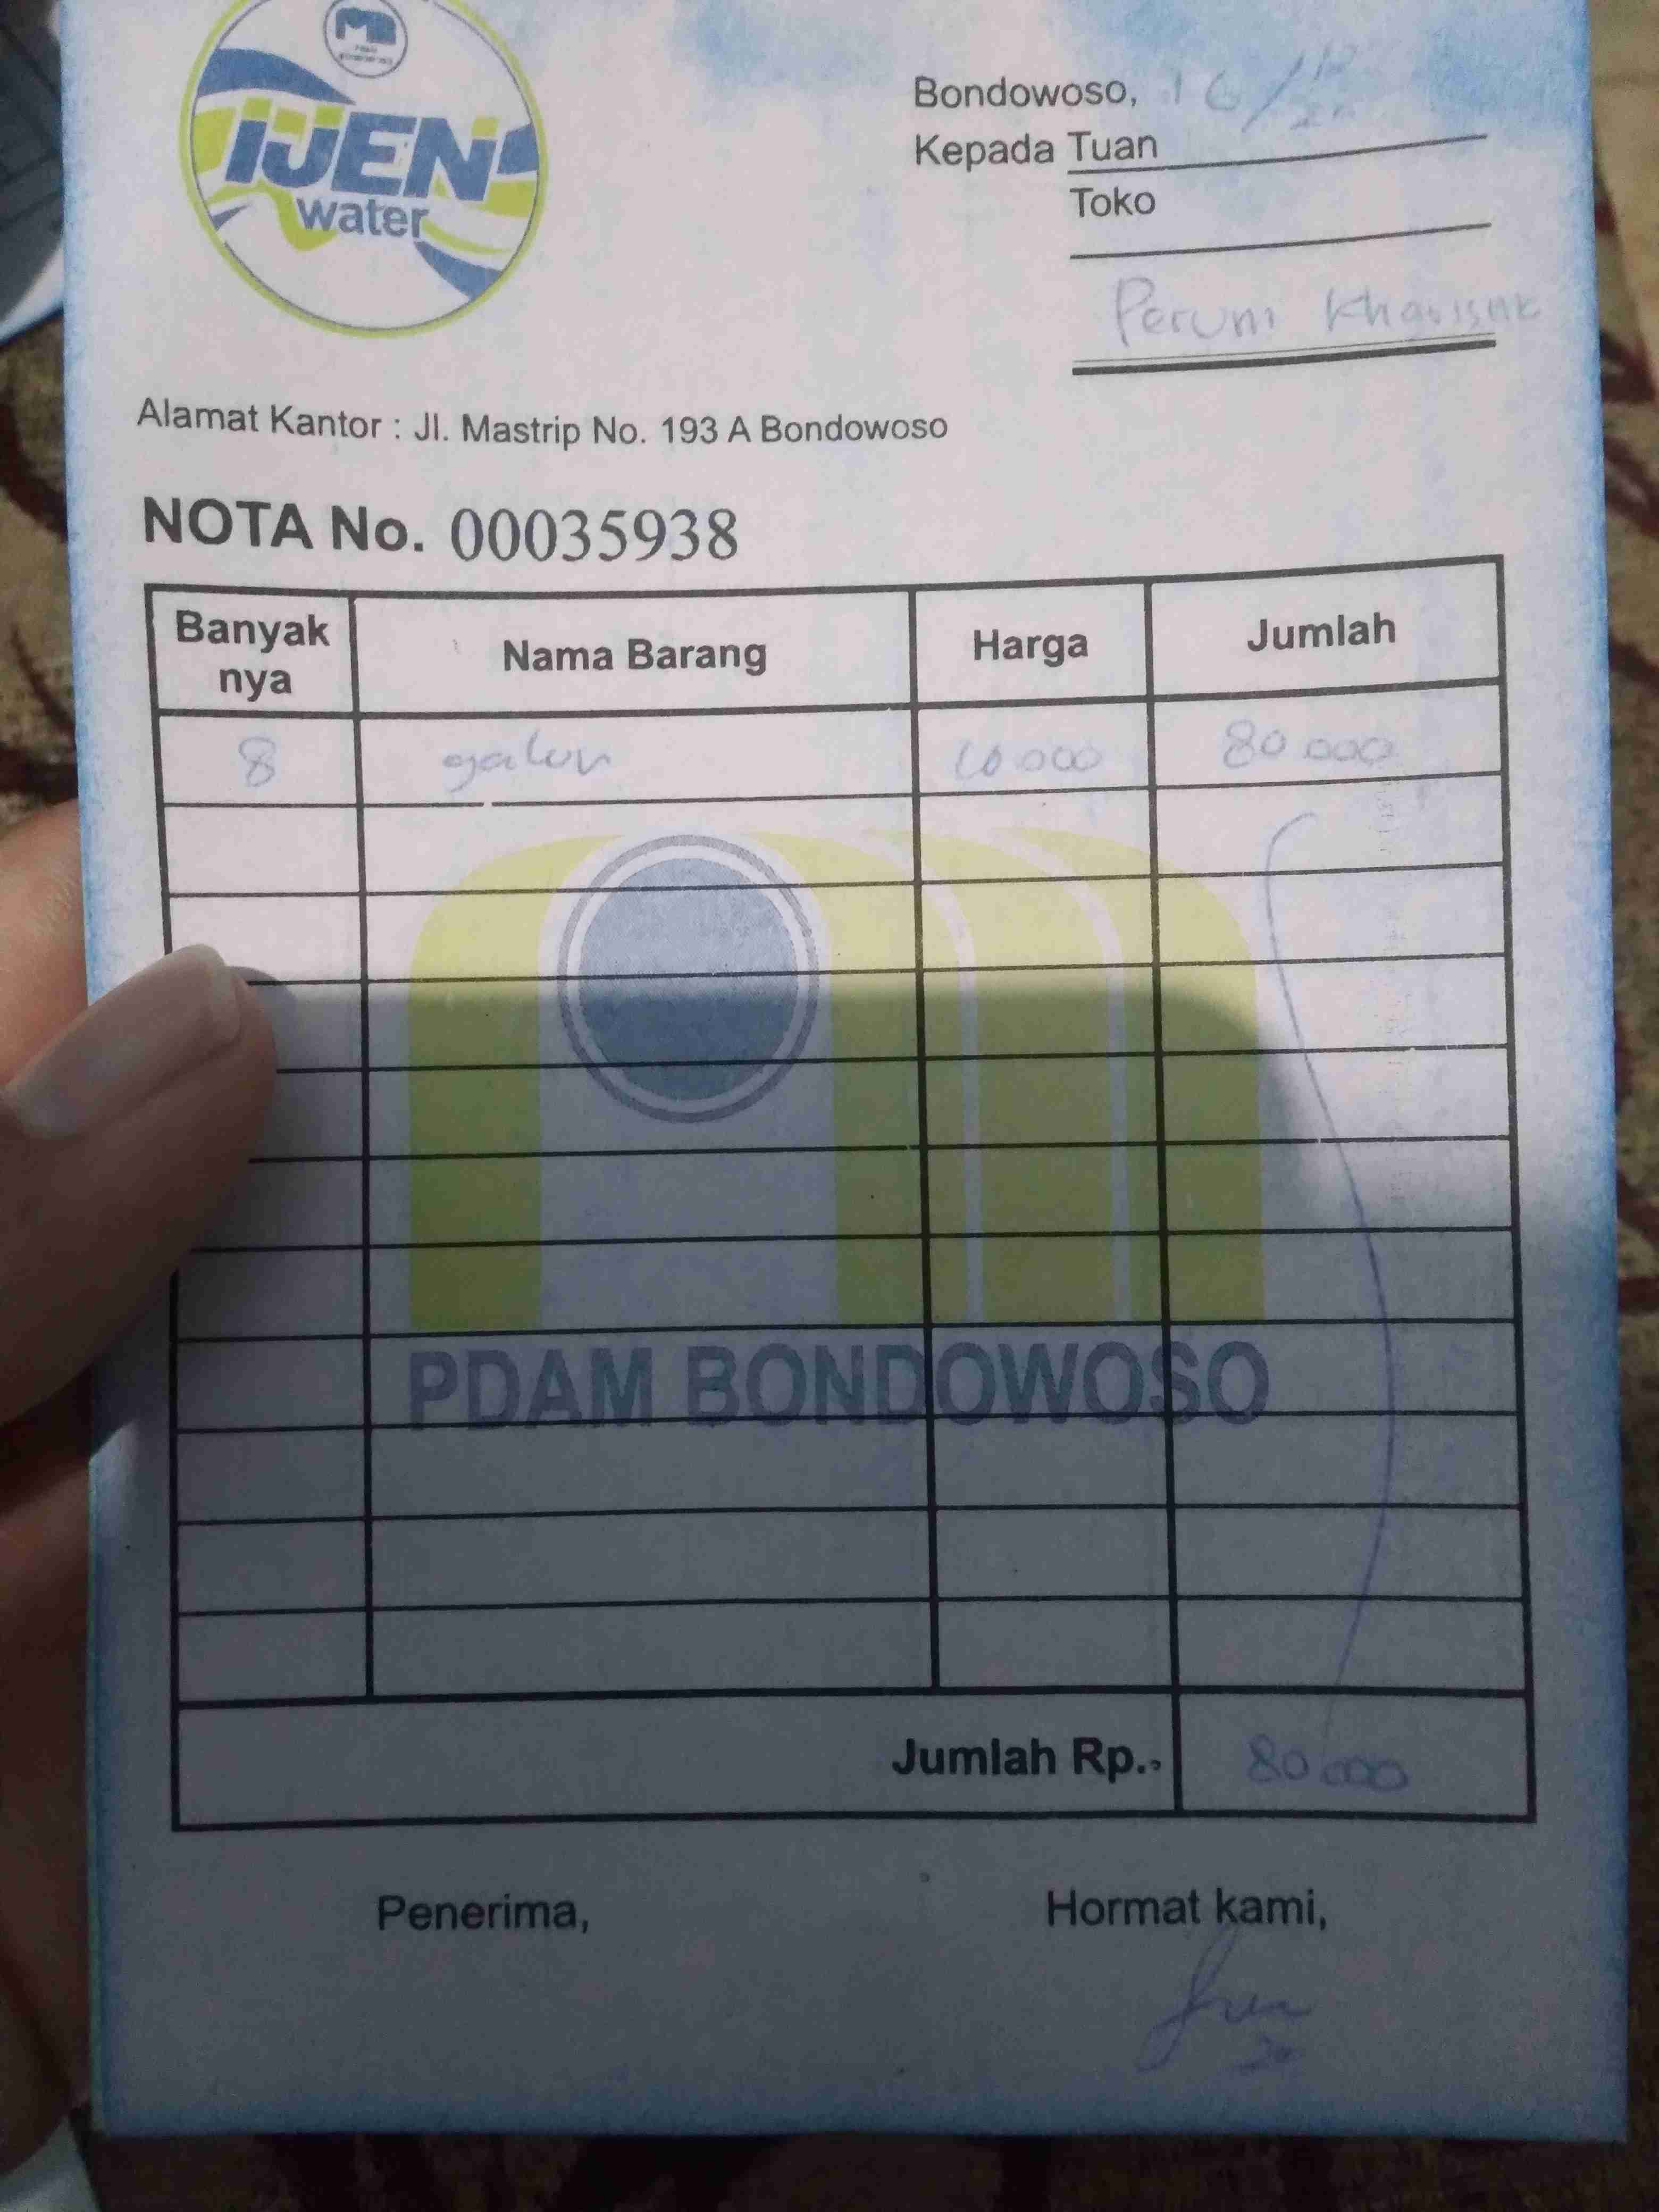 IJEN
water
Bondowoso, 16/
Kepada Tuan
Toko
Perum
Alamat Kantor : Jl. Mastrip No. 193 A Bondowoso
NOTA No. 00035938
Banyak nya Nama Barang Harga Jumlah
8 galon 10 000 80 000
PDAM BONDOWOSO
Jumlah Rp. 80 000
Penerima, Hormat kami,